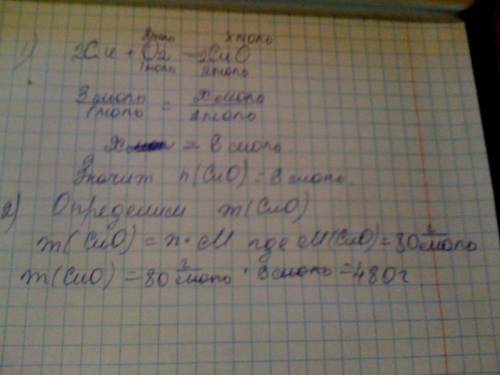 3моль x моль
1) 2Cu + O2 = 2CuO
1моль 2моль
3моль / 1моль = x моль / 2моль
x = 6 моль
Значит n(CuO) = 6 моль.
2) Определим m(CuO)
m(CuO) = n · M где M(CuO) = 80 г/моль
m(CuO) = 80 г/моль · 6 моль = 480г